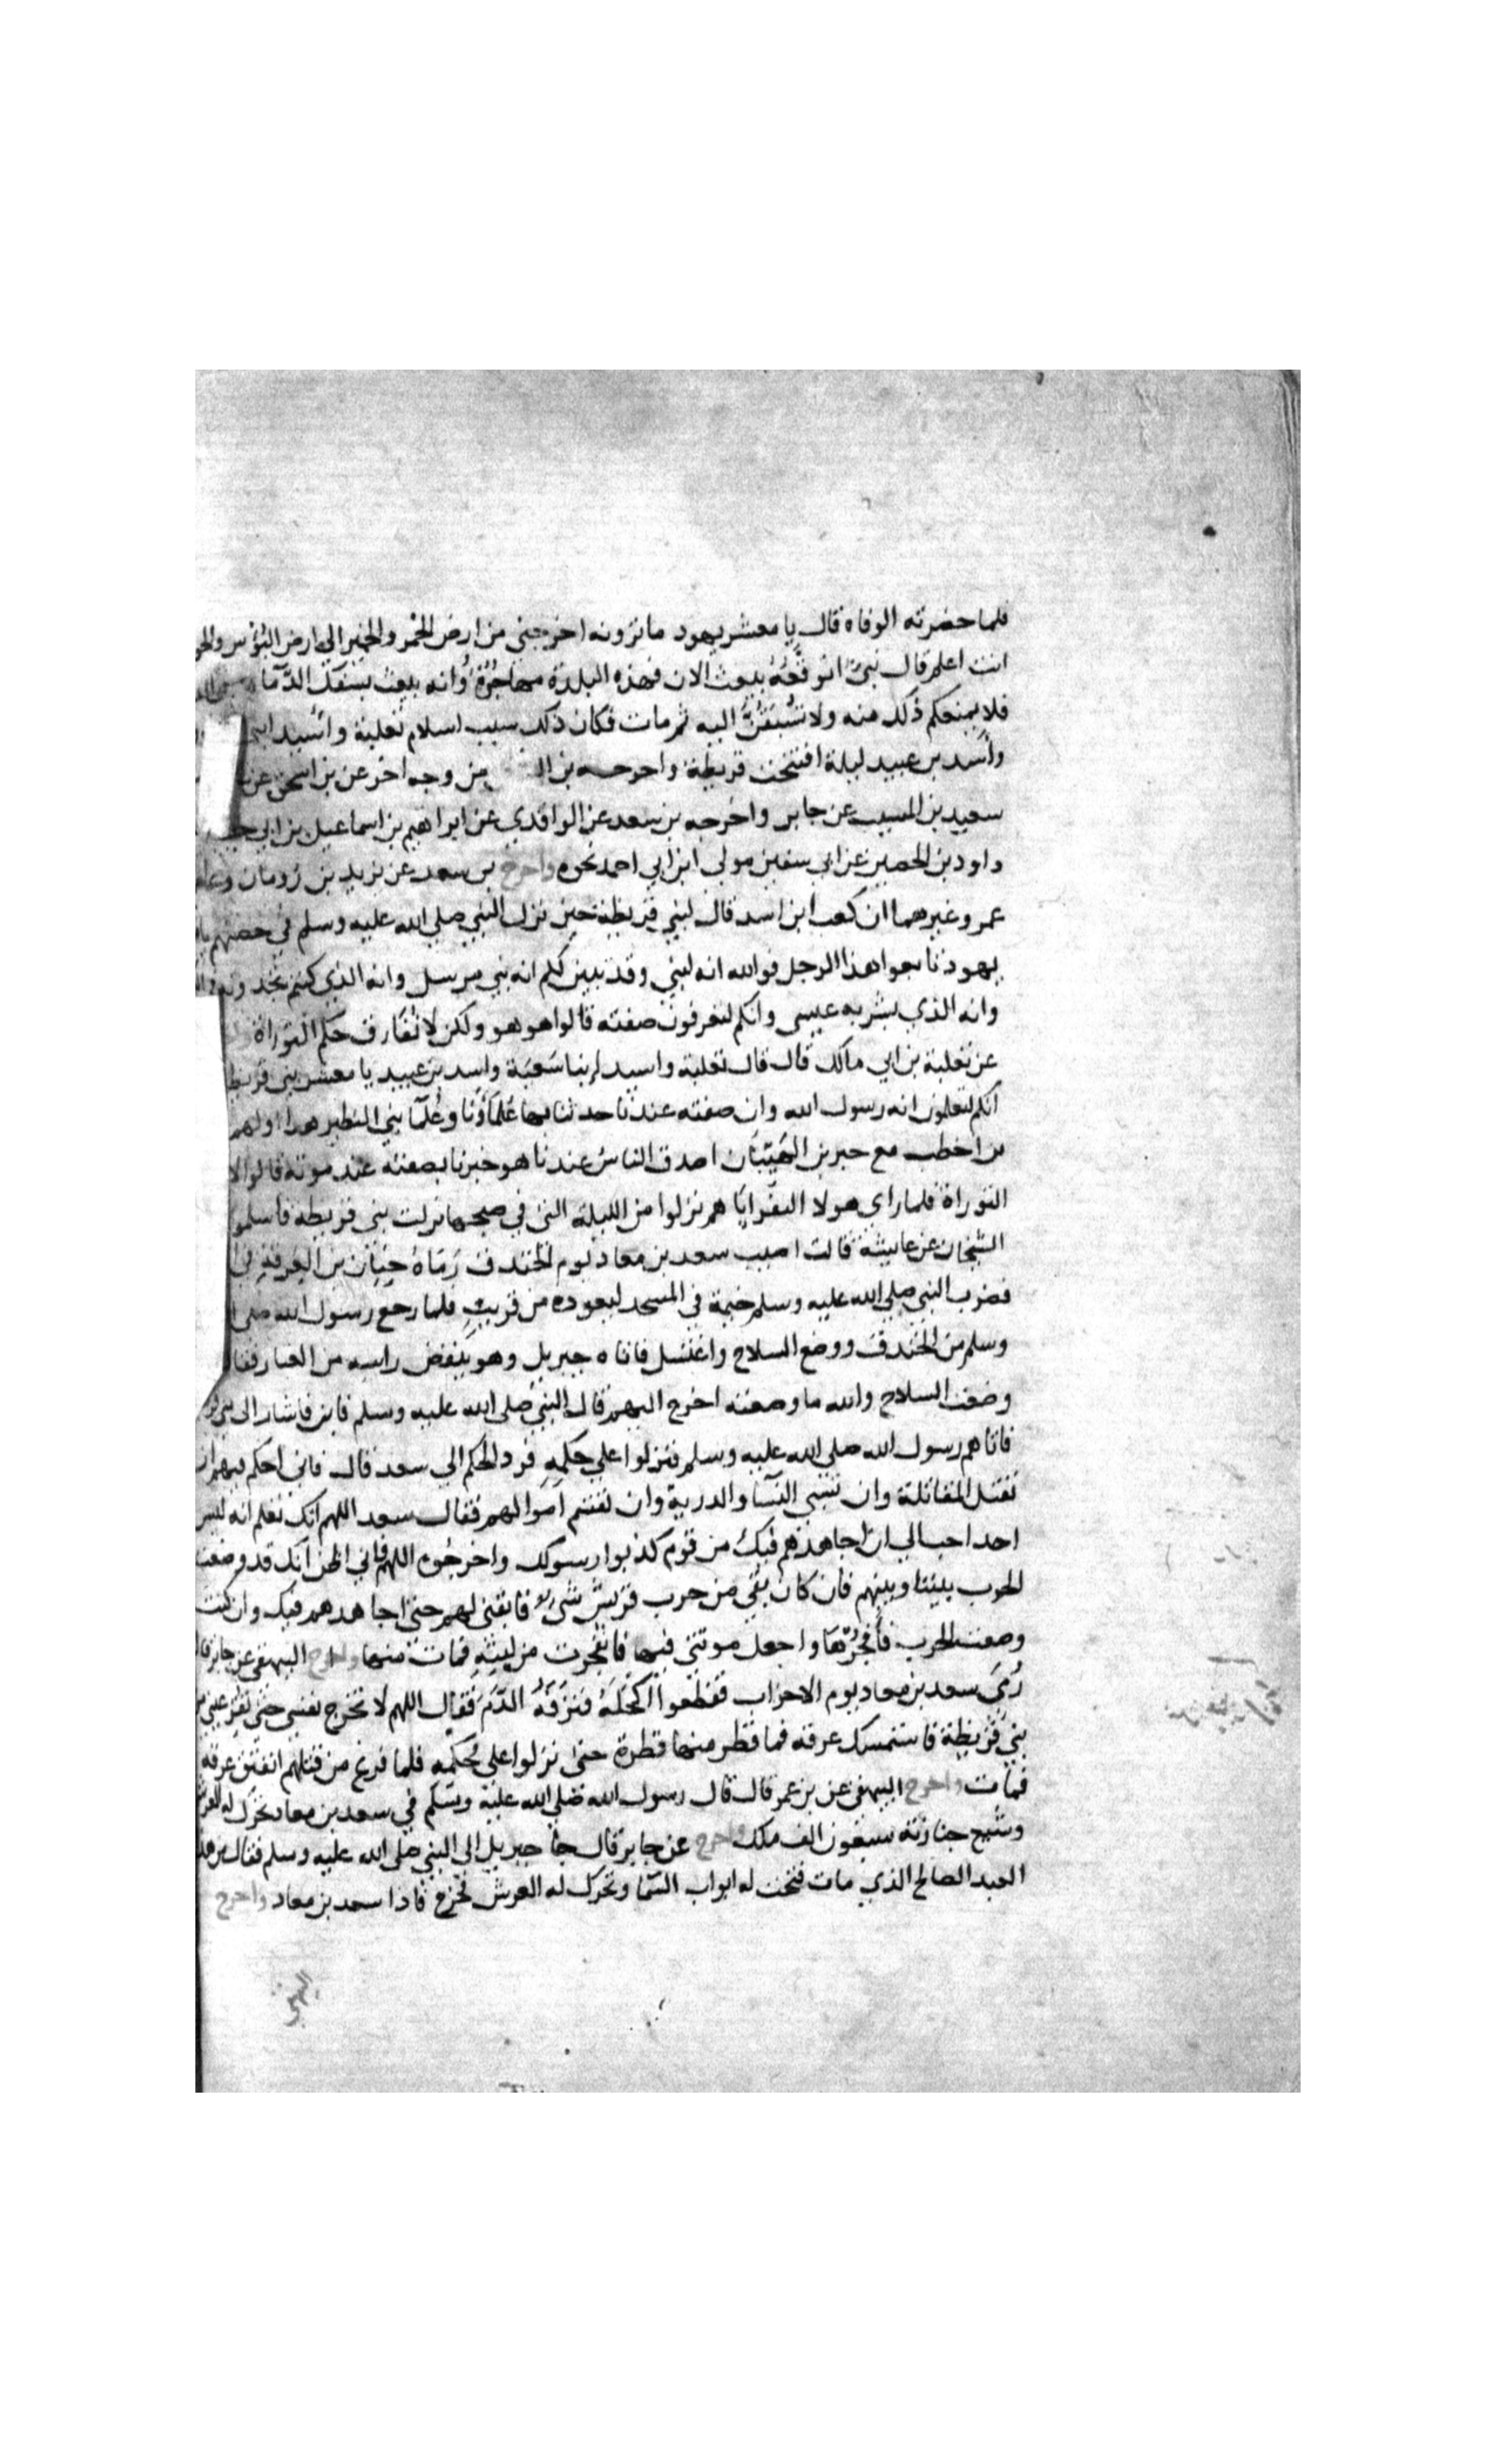 فلما حضرته الوفاه قال يا معشر يهود ما ترونه اخرجني من ارض الخمر والخمير الي ارض البؤس
انت اعلم قال نبيّ اتوقّعه يبعث الان فهذه البلدة مهاجرُه وانه يبعث بسفك الدّما
فلا يمنعكم ذلك منه ولا تُسْبَقُنَّ اليه ثم مات فكان ذلك سبب اسلام ثعلبة واسيد ابني
واسد بن عبيد ليلة افتتحت قريظة واخرجه بن من وجه اخر عن بن اسحق عن
سعيد بن المسيب عن جابر واخرجه بن سعد عن الواقدي عن ابراهيم بن اسماعيل بن ابي
داود بن الحصين عن ابي سفين مولي ابن ابي احمد نحوه واخرج بن سعد عن يزيد بن رُومان
عمر وغيرهما ان كعب ابن اسد قال لبني قريظة حين نزل النبي صلي الله عليه وسلم في حصنهم
يهود تابعوا هذا الرجل فو الله انه لنبي وقد تبين لكم انه نبي مرسل وانه الذي كنتم تجدونه
وانه الذي بشر به عيسي وانكم لتعرفون صفته قالوا هو هو ولكن لا نفارق حكم التوراة
عن ثعلبة بن ابي مالك قال قال ثعلبة واسيد ابنا سَعْيَة واسد بن عبيد يا معشر بني قريظ
انكم لتعلمون انه رسول الله وان صفته عندنا حدثنا بها علماؤنا وعُلمآ بني النظير هدا اولهم
بن اخطب مع حبر بن الهَيّبان اصدق الناس عندنا هو خبرنا بصفته عند موته قالوا لا
التوراة فلما راي هولا النفر اباهم نزلوا من الليلة التي في صبحها نزلت بني قريظه فاسلموا
الشيخان عن عايشة قالت اصيب سعد بن معاد يوم الخندق رَمَاهُ حِبّان بن العَرِقَةِ في
فضرب النبي صلي الله عليه وسلم خيمة في المسجد ليعوده من قريبٍ فلما رجع رسول الله صلي
وسلم من الخندق ووضع السلاح واغتسل فاتاه جبريل وهو ينفض راسه من الغبار فقا
وضعت السلاح والله ما وضعته اخرج اليهم قال النبي صلي الله عليه وسلم فاين فاشار الى بني
فاتاهم رسول الله صلي الله عليه وسلم فنزلوا علي حكمه فرد الحكم الي سعد قال فاني احكم فيهم ان
تقتل المقاتلة وان تسبي النسآ والدرية وان تقتسم اموالهم فقال سعد اللهم انك تعلم انه ليس
احد احب الي ان اجاهدهم فيك من قوم كذبوا رسولك واخرجوه اللهم فاني اظن انك قد وضعت
الحرب بيننا وبينهم فان كان بقي من حرب قريش شئ فابقني لهم حتي اجاهدهم فيك وان كنت
وضعت الحرب فافجُرْهَا واجعل موتتي فيها فانفجرت من ليته فمات منها واخرج البيهقي عن جابر قا
رُمِيَ سعد بن معاد يوم الاحزاب فقطعوا اكحَلَهُ فنزفهُ الدَّمَ فقال اللهم لا تخرج نفسي حتي تقر عيني من
بني قريظة فاستمسك عرقه فما قطر منها قطرة حتي نزلوا علي حكمه فلما فرغ من قتلهم انفتق عرقه
فمات واخرج البيهقي عن بن عمر قال قال رسول الله صلي الله علية وسلم في سعد بن معاد تحرك له العرش
وشيع جنازته سبعون الف ملك واخرج عن جابر قال جا جبريل الى النبي صلي الله عليه وسلم فقال من هذا
العبد الصالح الذي مات فتحت له ابواب السّما وتحرك له العرش فخرج فاذا سعد بن معاد واخرج
البيهقي